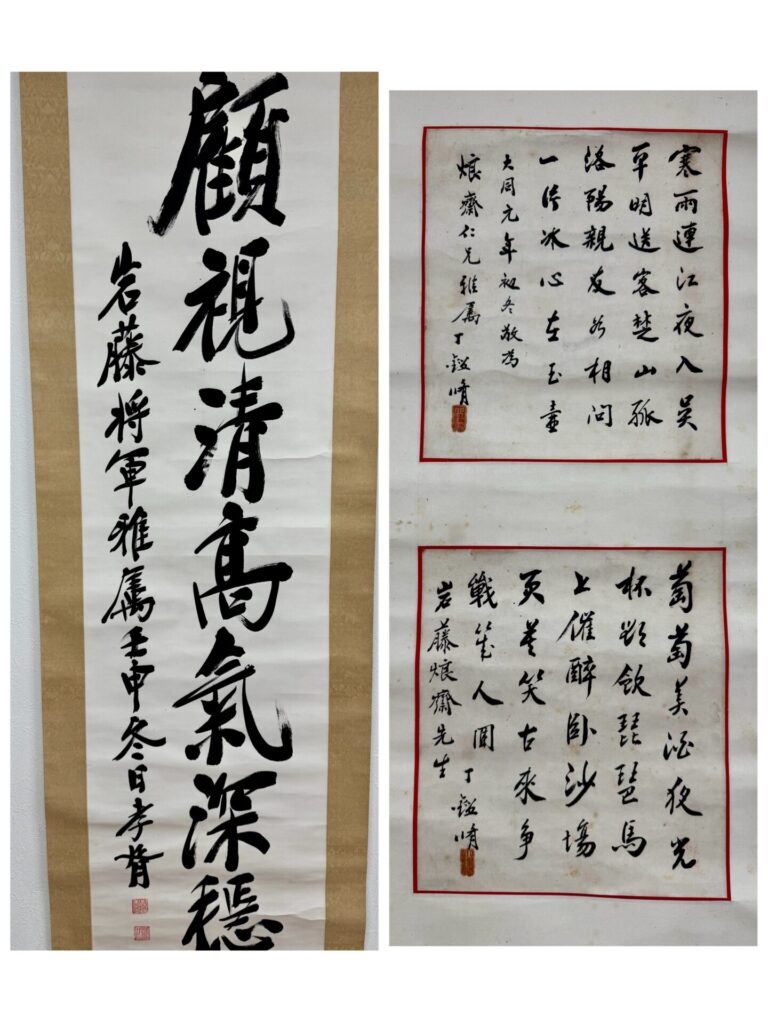 顧視清高氣深穩
岩藤将軍雅屬壬申冬日孝胥
寒雨連江夜入吳
平明送客楚山孤
洛陽親友如相問
一片冰心在玉壺
大同元年初冬敬為
烺齋仁兄雅屬丁鑑脩
葡萄美酒夜光
杯欲飲琵琶馬
上催醉卧沙場
君莫笑古來争
戰幾人回丁鑑脩
岩藤烺齋先生